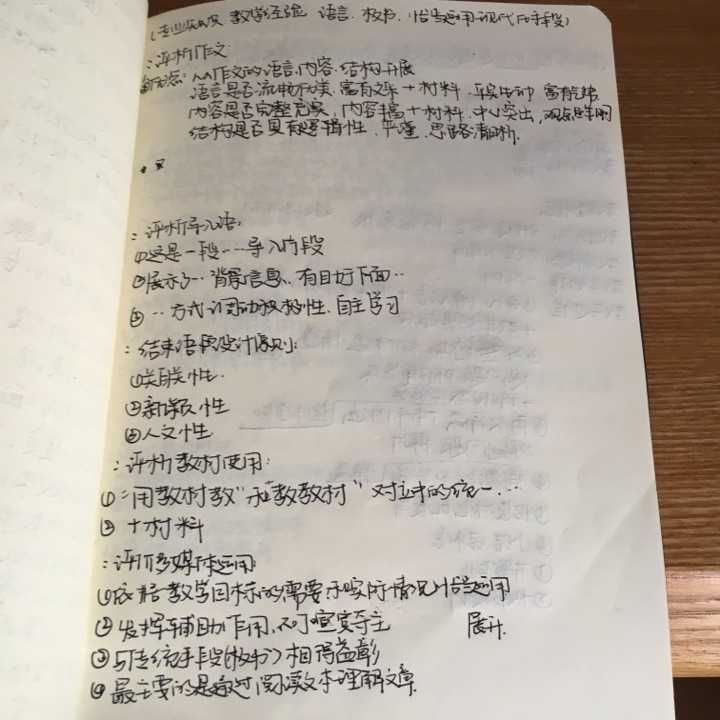 (专业发展 教学经验 语言、板书、恰当运用现代化手段)
：评析作文：
从作文的语言、内容、结构开展
语言是否流畅优美、富有文采 + 材料 平实生动 富有
内容是否完整充实，内容丰富 + 材料、中心突出，观点鲜明
结构是否具有逻辑性、严谨、思路清晰.
：评析导入语：
①这是一段……导入片段
②展示了… 背景信息、有目的下面…
③ … 方式 调动积极性、自主学习
：结束语段设计原则：
①关联性.
②新颖性
③人文性
：评析教材使用：
①："用教材教"和"教教材"对立中的统一…
② + 材料
：评价多媒体运用
①依据教学目标的需要和实际情况恰当运用
②发挥辅助作用，不可喧宾夺主 展开.
③与传统手段(板书)相得益彰
④最主要的是通过阅读文本理解文章.